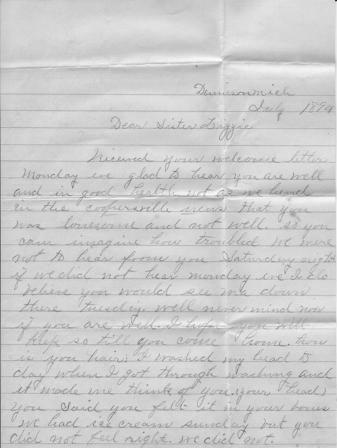 Dennison Mich
July 1899
Dear Sister Lizzie
Received your welcome letter
Monday we glad to hear you are well
and in good health not as we heard
in the coopersville news that you
was lonesome and not well. so you
can imagine how troubled we were
not to hear from you Saturday night
if we did not hear monday
where you would see me down
there tuesday. well never mind now
if you are well. I hope you will
keep so till you come home. how
is you hair I washed my head to
day when I got through washing and
it made me think of you your head
you said you felt it in your bones
we had ice cream sunday but you
did not feel right. we did not